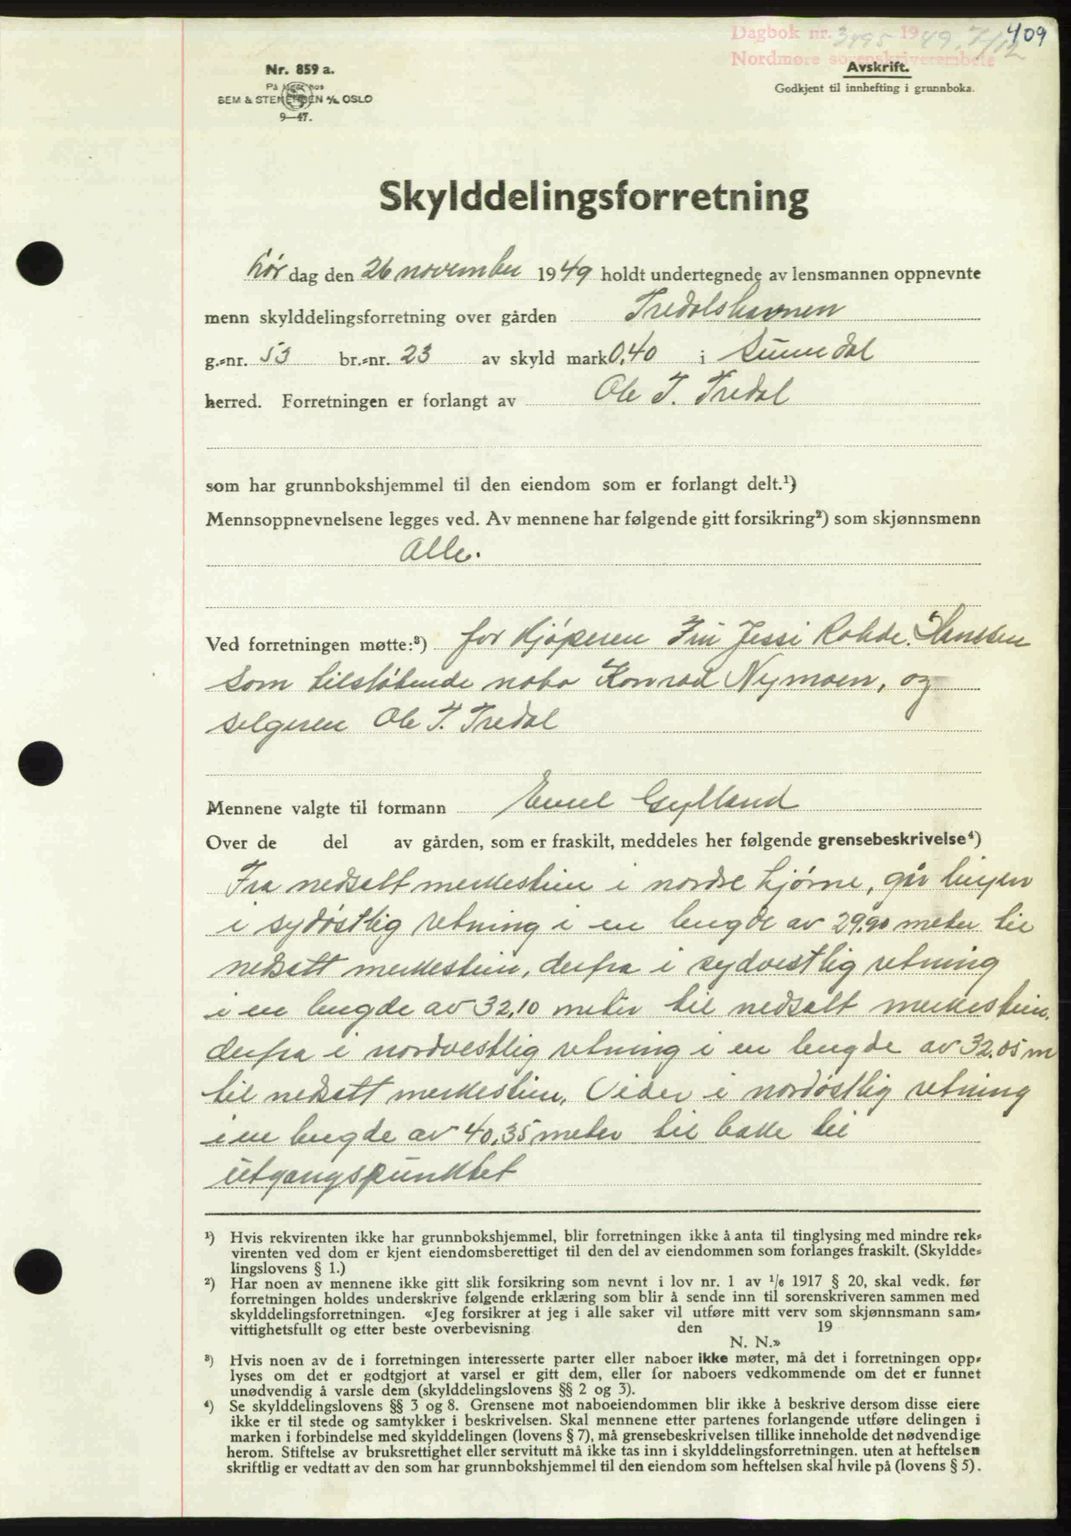 409
Dagbok nr. 3495 1949, 7/12
Nordmøre sorenskriverembete
Nr. 859 a.
På lager hos
SEM & STENERSEN A/S, OSLO
9—47.
Avskrift.
Godkjent til innhefting i grunnboka.
Skylddelingsforretning
Lør dag den 26 november 1949 holdt undertegnede av lensmannen oppnevnte
menn skylddelingsforretning over gården Tredalshavnen
g.-nr. 53 br.-nr. 23 av skyld mark 0,40 i Sunndal
herred. Forretningen er forlangt av Ole T. Tredal
som har grunnbokshjemmel til den eiendom som er forlangt delt.¹)
Mennsoppnevnelsene legges ved. Av mennene har følgende gitt forsikring²) som skjønnsmenn
Alle.
Ved forretningen møtte:³) for kjøperen Fru Jessi Rohde. Hanssen
som tilstøtende nabo Konrad Nymoen, og
selgeren Ole T. Tredal
Mennene valgte til formann Emil Gylland
Over de del av gården, som er fraskilt, meddeles her følgende grensebeskrivelse⁴)
Fra nedsatt merkestein i nordre hjørne, går linjen
i sydøstlig retning i en lengde av 29.90 meter til
nedsatt merkestein, derfra i sydvestlig retning
i en lengde av 32,10 meter til nedsatt merkestein,
derfra i nordvestlig retning i en lengde av 32.05 m
til nedsatt merkestein. Videre i nordøstlig retning
i en lengde av 40,35 meter til bake til
utgangspunktet
¹) Hvis rekvirenten ikke har grunnbokshjemmel, blir forretningen ikke å anta til tinglysing med mindre rek-
virenten ved dom er kjent eiendomsberettiget til den del av eiendommen som forlanges fraskilt. (Skyldde-
lingslovens § 1.)
²) Har noen av mennene ikke gitt slik forsikring som nevnt i lov nr. 1 av ¹/₆ 1917 § 20, skal vedk. før
forretningen holdes underskrive følgende erklæring som blir å sende inn til sorenskriveren sammen med
skylddelingsforretningen. «Jeg forsikrer at jeg i alle saker vil utføre mitt verv som skjønnsmann sam-
vittighetsfullt og etter beste overbevisning den 19
N. N.»
³) Hvis noen av de i forretningen interesserte parter eller naboer ikke møter, må det i forretningen opp-
lyses om det er godtgjort at varsel er gitt dem, eller for naboers vedkommende om det er funnet
unødvendig å varsle dem (skylddelingslovens §§ 2 og 3).
⁴) Se skylddelingslovens §§ 3 og 8. Grensene mot naboeiendommen blir ikke å beskrive dersom disse eiere
ikke er til stede og samtykker i beskrivelsen. Skal mennene etter partenes forlangende utføre delingen i
marken i forbindelse med skylddelingen (lovens § 7), må grensebeskrivelsen tillike inneholde det nødvendige
herom. Stiftelse av bruksrettighet eller servitutt må ikke tas inn i skylddelingsforretningen, uten at heftelsen
skriftlig er vedtatt av den som har grunnbokshjemmel til den eiendom som heftelsen skal hvile på (lovens § 5).